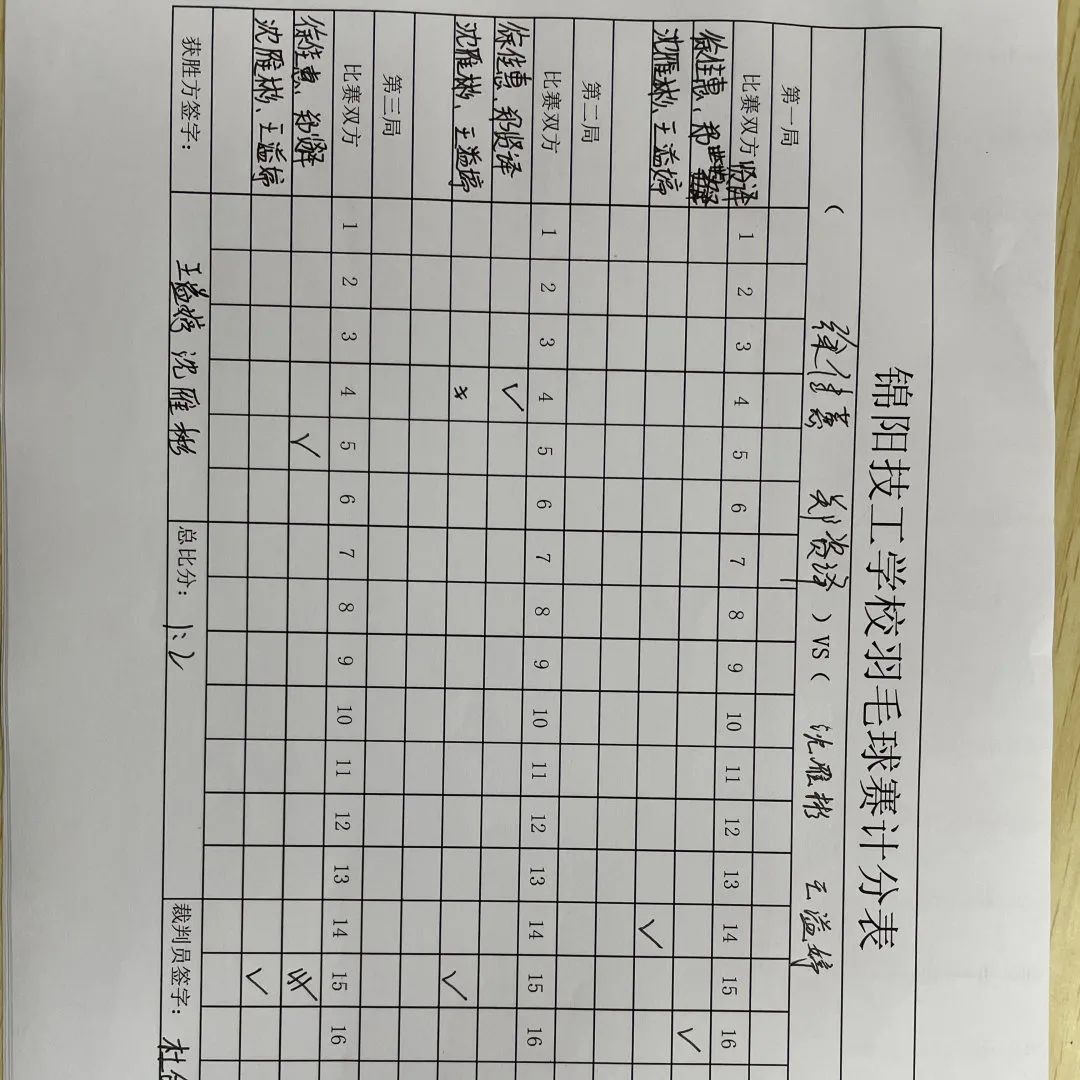 锦阳技工学校羽毛球赛计分表
( 徐佳慧 郑贤译 ) VS ( 沈雁彬 王溢婷
第一局
比赛双方 1 2 3 4 5 6 7 8 9 10 11 12 13 14 15 16
徐佳惠、郑贤译 ✓
沈雁彬、王溢婷 ✓
第二局
比赛双方 1 2 3 4 5 6 7 8 9 10 11 12 13 14 15 16
徐佳惠、郑贤译 ✓
沈雁彬、王溢婷 ✓
第三局
比赛双方 1 2 3 4 5 6 7 8 9 10 11 12 13 14 15 16
徐佳惠、郑贤译 ✓
沈雁彬、王溢婷 ✓
获胜方签字: 王溢婷 沈雁彬 总比分: 1:2 裁判员签字: 杜